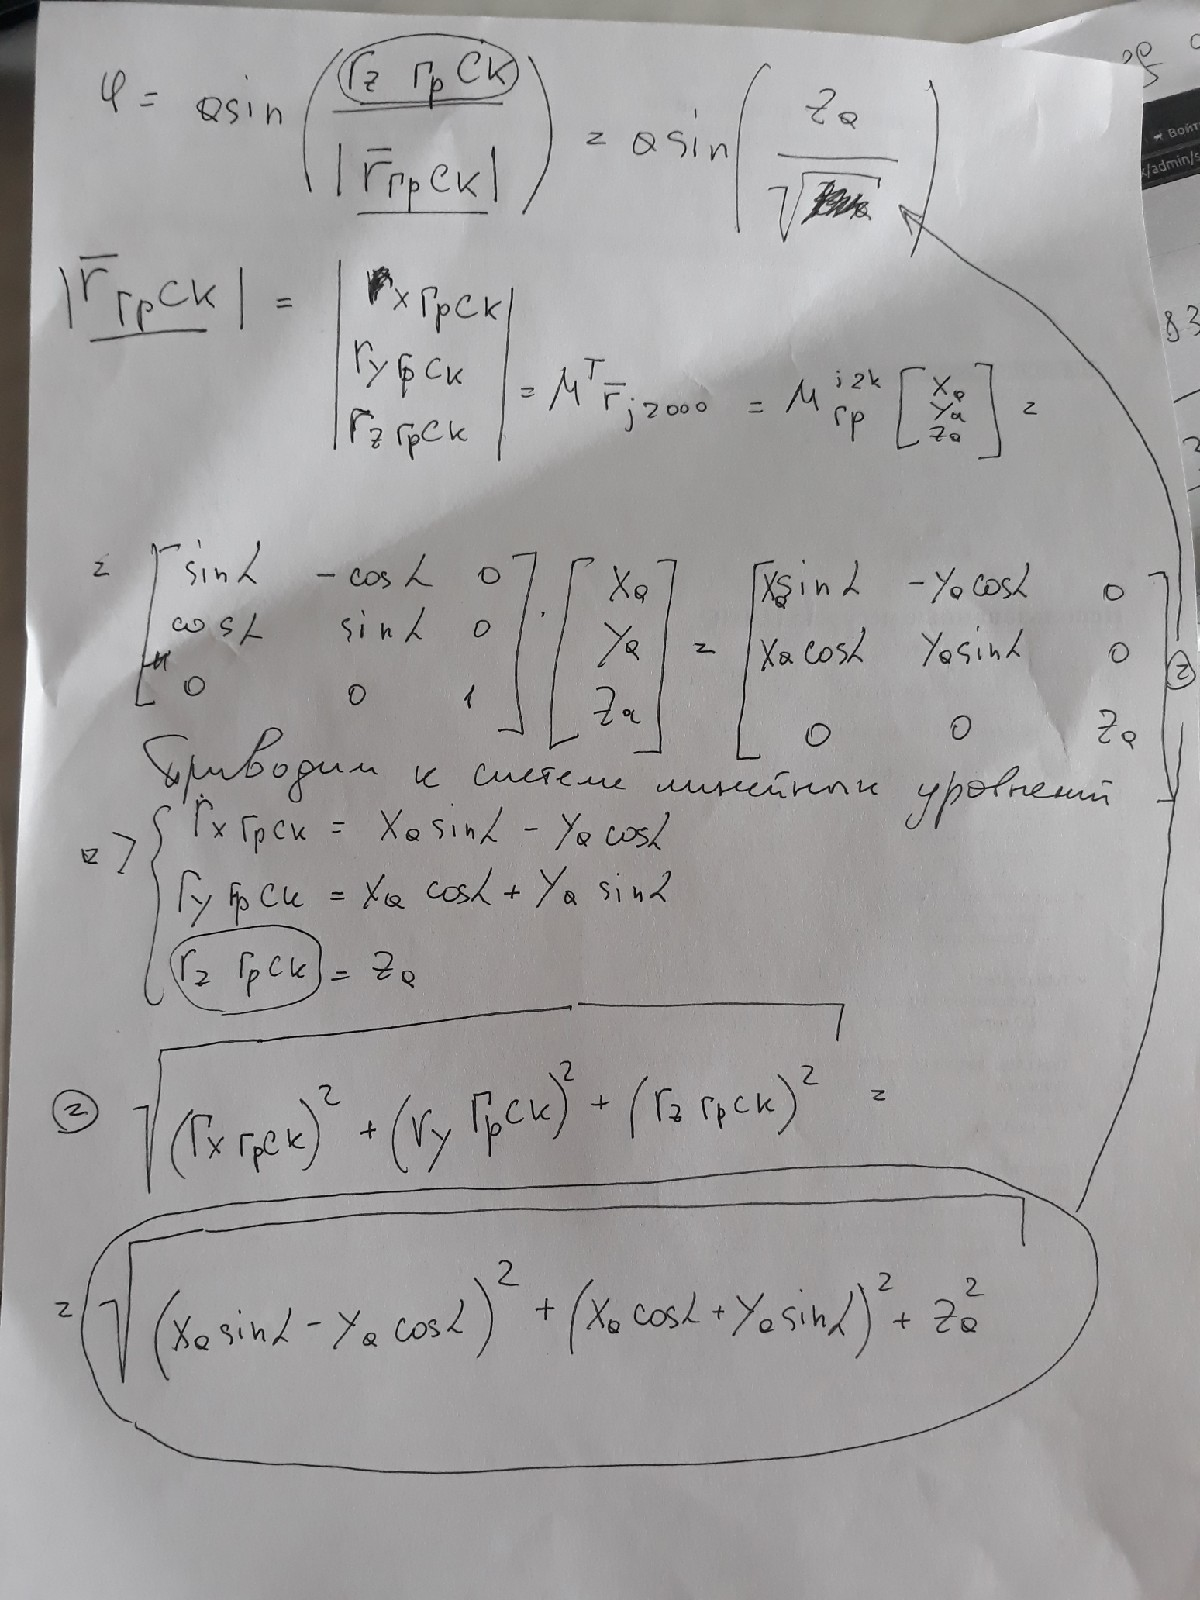 φ = asin ( rz ГрСК / |r̄ ГрСК| ) = asin ( Za / √ )
|r̄ ГрСК| = | rx ГрСК
ry ГрСК
rz ГрСК | = Mᵀ r̄ j2000 = M j2k гр [ Xa
Ya
Za ] =
= [ sinL -cosL 0
cosL sinL 0
0 0 1 ] · [ Xa
Ya
Za ] = [ Xa sinL -Ya cosL 0
Xa cosL Ya sinL 0
0 0 Za ] =
Приводим к системе линейных уровнений
=> { rx ГрСК = Xa sinL - Ya cosL
ry ГрСК = Xa cosL + Ya sinL
rz ГрСК = Za
= √ (rx ГрСК)² + (ry ГрСК)² + (rz ГрСК)² =
= √ (Xa sinL - Ya cosL)² + (Xa cosL + Ya sinL)² + Za²
Войт
/admin/s